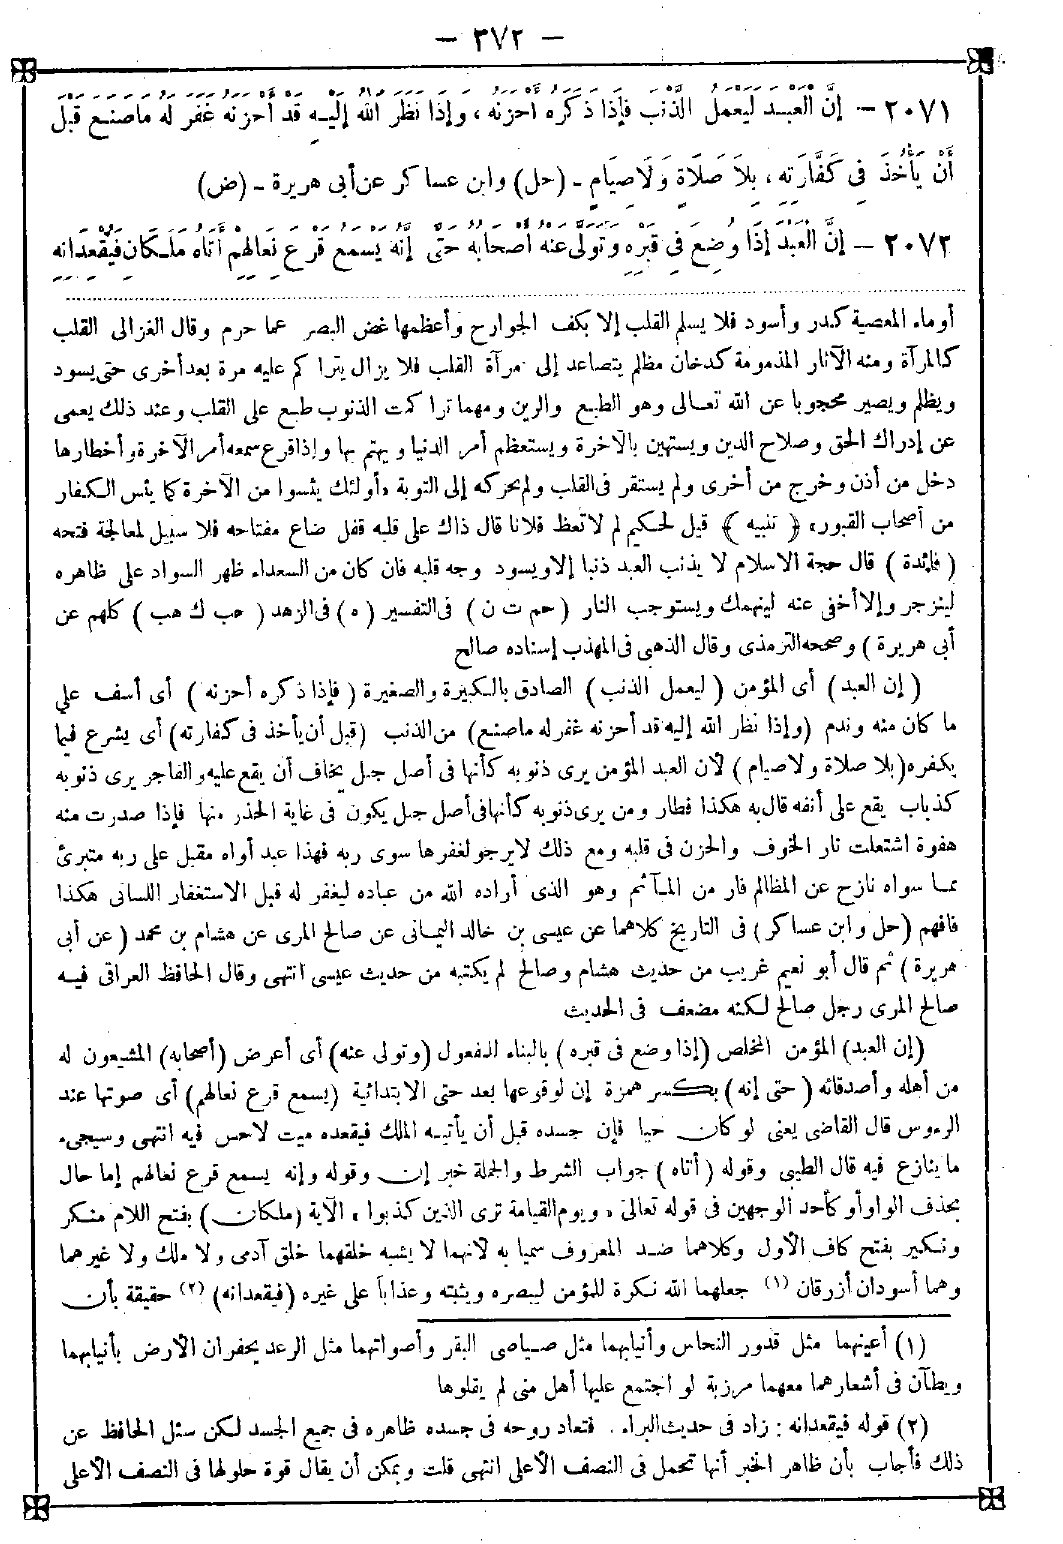 — ٣٧٢ —
٢٠٧١ — إِنَّ الْعَبْدَ لَيَعْمَلُ الذَّنْبَ فَإِذَا ذَكَرَهُ أَحْزَنَهُ ، وَإِذَا نَظَرَ اللهُ إِلَيْهِ قَدْ أَحْزَنَهُ غَفَرَ لَهُ مَا صَنَعَ قَبْلَ
أَنْ يَأْخُذَ فِي كَفَّارَتِهِ ، بِلاَ صَلَاةٍ وَلَا صِيَامٍ - (حل) وابن عساكر عن أبى هريرة - (ض)
٢٠٧٢ — إِنَّ الْعَبْدَ إِذَا وُضِعَ فِي قَبْرِهِ وَتَوَلَّى عَنْهُ أَصْحَابُهُ حَتَّى إِنَّهُ يَسْمَعُ قَرْعَ نِعَالِهِمْ أَتَاهُ مَلَكَانِ فَيُقْعِدَانِهِ
أوماء المعصية كدر وأسود فلا يسلم القلب إلا بكف الجوارح وأعظمها غض البصر عما حرم وقال الغزالى القلب
كالمرآة ومنه الآثار المذمومة كدخان مظلم يتصاعد إلى مرآة القلب فلا يزال يتراكم عليه مرة بعد أخرى حتى يسود
ويظلم ويصير محجوبا عن الله تعالى وهو الطبع والرين ومهما تراكمت الذنوب طبع على القلب وعند ذلك يعمى
عن إدراك الحق وصلاح الدين ويستهين بالآخرة ويستعظم أمر الدنيا ويهتم بها وإذا قرع سمعه أمر الآخرة وأخطارها
دخل من أذن وخرج من أخرى ولم يستقر فى القلب ولم يحركه إلى التوبة «أولئك يئسوا من الآخرة كما يئس الكفار
من أصحاب القبور» ﴿ تنبيه ﴾ قيل لحكيم لم لا تعظ فلانا قال ذاك على قلبه قفل ضاع مفتاحه فلا سبيل لمعالجة فتحه
( فائدة ) قال حجة الاسلام لا يذنب العبد ذنبا إلا ويسود وجه قلبه فان كان من السعداء ظهر السواد على ظاهره
لينزجر وإلا أخفى عنه لينهمك ويستوجب النار ( حم ت ن ) فى التفسير ( ه ) فى الزهد ( حب ك هب ) كلهم عن
أبى هريرة ) وصححه الترمذى وقال الذهبى فى المهذب إسناده صالح
( إن العبد ) أى المؤمن ( ليعمل الذنب ) الصادق بالكبيرة والصغيرة ( فإذا ذكره أحزنه ) أى أسف على
ما كان منه وندم (وإذا نظر الله إليه قد أحزنه غفر له ماصنع) من الذنب (قبل أن يأخذ فى كفارته) أى يشرع فيما
يكفره (بلا صلاة ولاصيام ) لأن العبد المؤمن يرى ذنوبه كأنها فى أصل جبل يخاف أن يقع عليه والفاجر يرى ذنوبه
كذباب يقع على أنفه قال به هكذا فطار ومن يرى ذنوبه كأنها فى أصل جبل يكون فى غاية الحذر منها فإذا صدرت منه
هفوة اشتعلت نار الخوف والحزن فى قلبه ومع ذلك لا يرجو لغفرها سوى ربه فهذا عبد أواه مقبل على ربه متبرئ
مما سواه نازح عن المظالم فار من المآثم وهو الذى أراده الله من عباده ليغفر له قبل الاستغفار اللسانى هكذا
فافهم (حل وابن عساكر ) فى التاريخ كلاهما عن عيسى بن خالد اليمانى عن صالح المرى عن هشام بن محمد ( عن أبى
هريرة ) ثم قال أبو نعيم غريب من حديث هشام وصالح لم يكتبه من حديث عيسى انتهى وقال الحافظ العراقى فيه
صالح المرى رجل صالح لكنه مضعف فى الحديث
(إن العبد) المؤمن المخلص (إذا وضع فى قبره ) بالبناء للمفعول (وتولى عنه) أى أعرض (أصحابه) المشيعون له
من أهله وأصدقائه ( حتى إنه ) بكسر همزة إن لوقوعها بعد حتى الابتدائية (يسمع قرع نعالهم) أى صوتها عند
الرءوس قال القاضى يعنى لو كان حيا فإن جسده قبل أن يأتيه الملك فيقعده ميت لا حس فيه انتهى وسيجىء
ما ينازع فيه قال الطيبى وقوله ( أتاه ) جواب الشرط والجملة خبر إن وقوله وإنه يسمع قرع نعالهم إما حال
بحذف الواو أو كأحد الوجهين فى قوله تعالى « ويوم القيامة ترى الذين كذبوا » الآية (ملكان) بفتح اللام منكر
ونكير بفتح كاف الأول وكلاهما ضد المعروف سميا به لأنهما لا يشبه خلقهما خلق آدمى ولا ملك ولا غيرهما
وهما أسودان أزرقان (١) جعلهما الله نكرة للمؤمن ليبصره ويثبته وعذاباً على غيره (فيقعدانه) (٢) حقيقة بأن
(١) أعينهما مثل قدور النحاس وأنيابهما مثل صياصى البقر وأصواتهما مثل الرعد يحفران الأرض بأنيابهما
ويطآن فى أشعارهما معهما مرزبة لو اجتمع عليها أهل منى لم يقلوها
(٢) قوله فيقعدانه : زاد فى حديث البراء . فتعاد روحه فى جسده ظاهره فى جميع الجسد لكن سئل الحافظ عن
ذلك فأجاب بأن ظاهر الخبر أنها تحمل فى النصف الأعلى انتهى قلت ويمكن أن يقال قوة حلولها فى النصف الأعلى